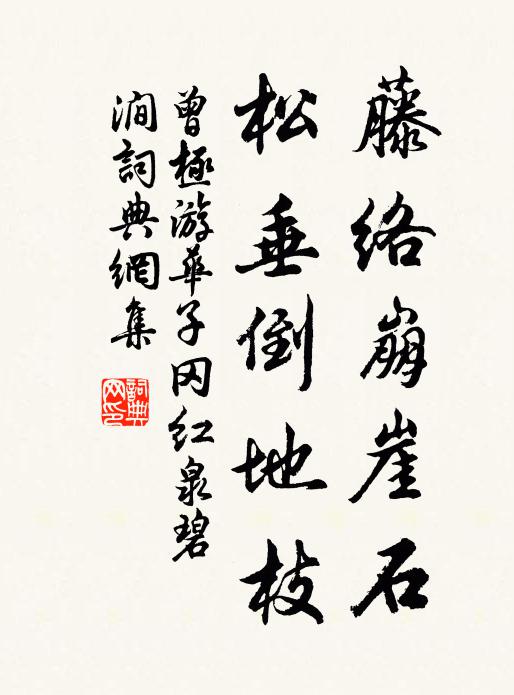 藤络崩崖石
松垂倒地枝
曾極游華子冈红泉碧
澗詞典網集
詞典网印